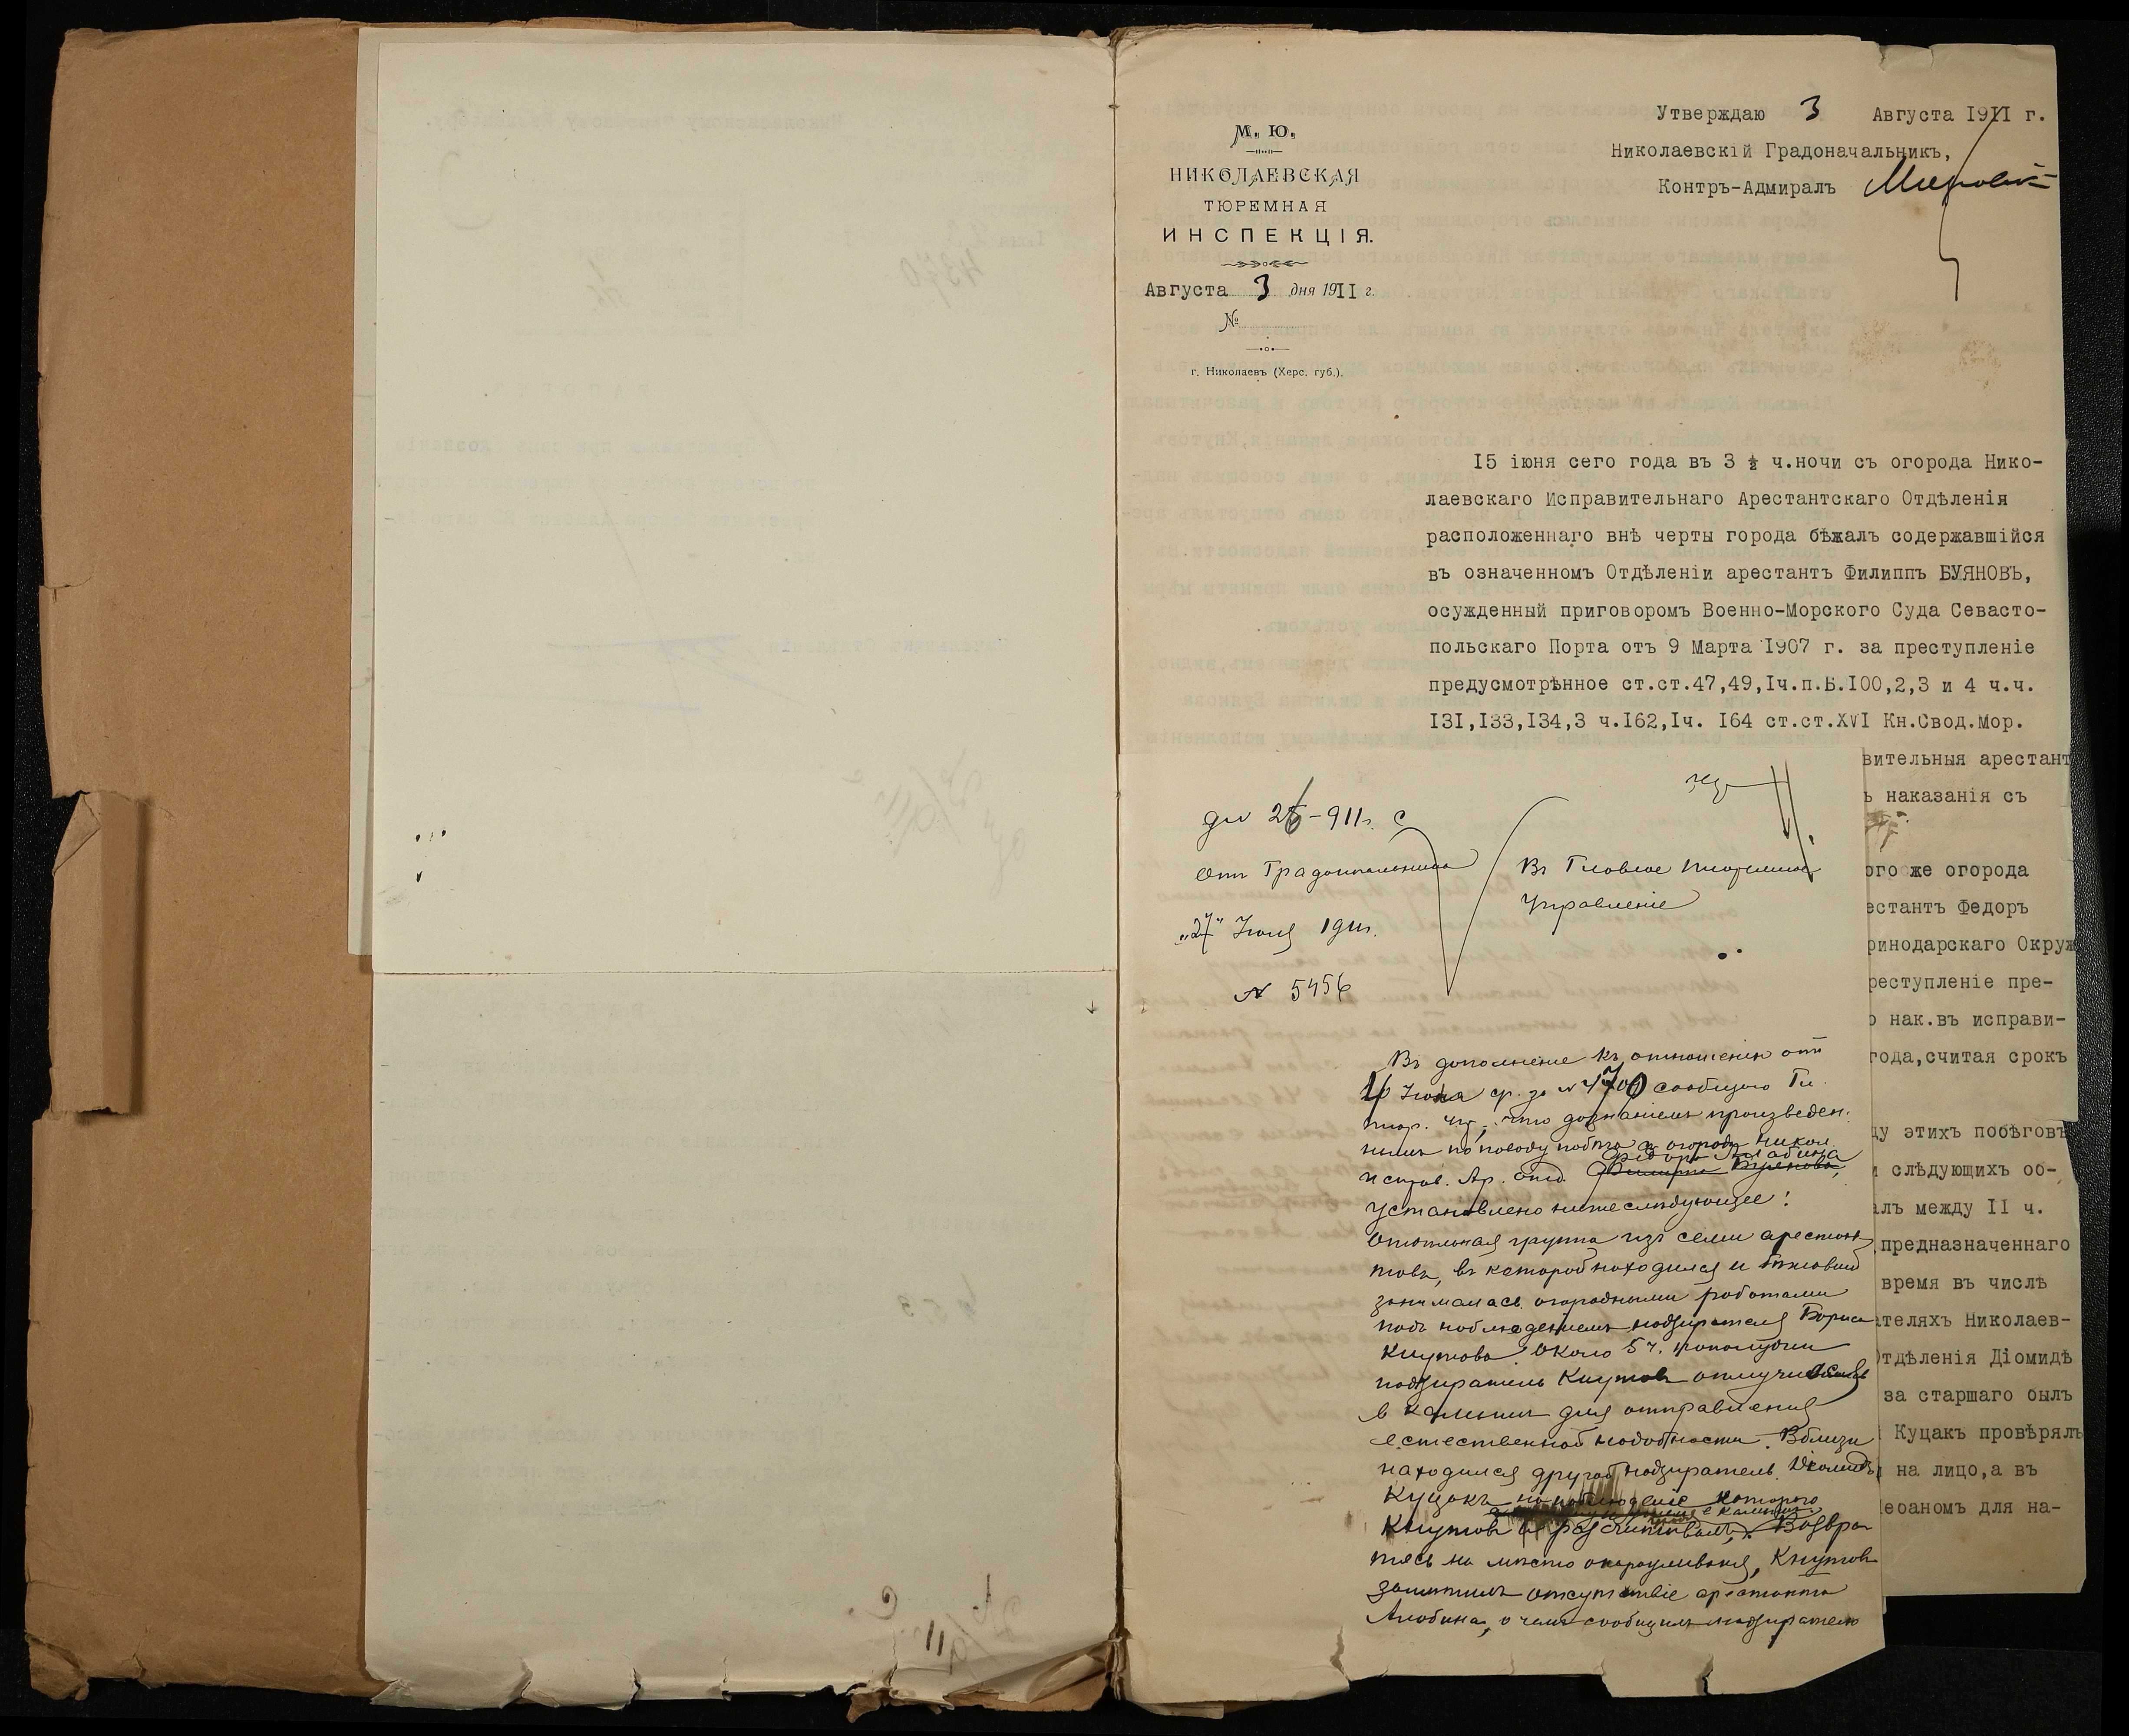 М. Ю.
НИКОЛАЕВСКАЯ
ТЮРЕМНАЯ
ИНСПЕКЦІЯ.
Августа 3 дня 1911 г.
№
г. Николаевъ (Херс. губ.).
Утверждаю 3 Августа I9II г.
Николаевскій Градоначальникъ,
Контръ-Адмиралъ
I5 іюня сего года въ 3 ½ ч.ночи съ огорода Нико-
лаевскаго Исправительнаго Арестантскаго Отдѣленія
расположеннаго внѣ черты города бѣжалъ содержавшійся
въ означенномъ Отдѣленіи арестантъ Филиппъ БУЯНОВЪ,
осужденный приговоромъ Военно-Морского Суда Севасто-
польскаго Порта отъ 9 Марта I907 г. за преступленіе
предусмотрѣнное ст.ст.47,49,Iч.п.Б.I00,2,3 и 4 ч.ч.
I3I,I33,I34,3 ч.I62,Iч. I64 ст.ст.XVI Кн.Свод.Мор.
вительныя арестант
ь наказанія съ
ого же огорода
естантъ Федоръ
ринодарскаго Окруж
реступленіе пре-
о нак.въ исправи-
года,считая срокъ
ду этихъ побѣговъ
и слѣдующихъ об-
алъ между II ч.
предназначеннаго
время въ числѣ
ателяхъ Николаев-
Отдѣленія Діомидѣ
за старшаго былъ
Куцакъ провѣрялъ
на лицо,а въ
ебаномъ для на-
911 г. С
Отъ Градоначальника
"27" Іюля 1911 г.
№ 5456
Въ Главное Тюремное
Управленіе
Въ дополненіе къ отношенію отъ
Іюня ср. за № 4700 сообщаю Гл.
Тюр. Упр., что дознаніемъ произведен.
нымъ по поводу побѣга съ огорода Никол.
Федора Алабина
Исправ. Ар. отд. Филиппа Буянова,
установлено нижеслѣдующее:
Отдѣльная группа изъ семи арестан
товъ, въ которой находился и бѣжавшій
занималась огородными работами
подъ наблюденіемъ надзирателя Бориса
Кнутова. Около 5 ч. пополудни
надзиратель Кнутовъ отлучился
в камыши для отправленія
естественной надобности. Вблизи
находился другой надзиратель Діомидъ
Куцакъ на наблюденіе котораго
Кнутовъ и разсчитывалъ. Возвра
тясь на мѣсто окарауливанія, Кнутовъ
замѣтилъ отсутствіе арестанта
Алабина, о чемъ сообщилъ надзирателю